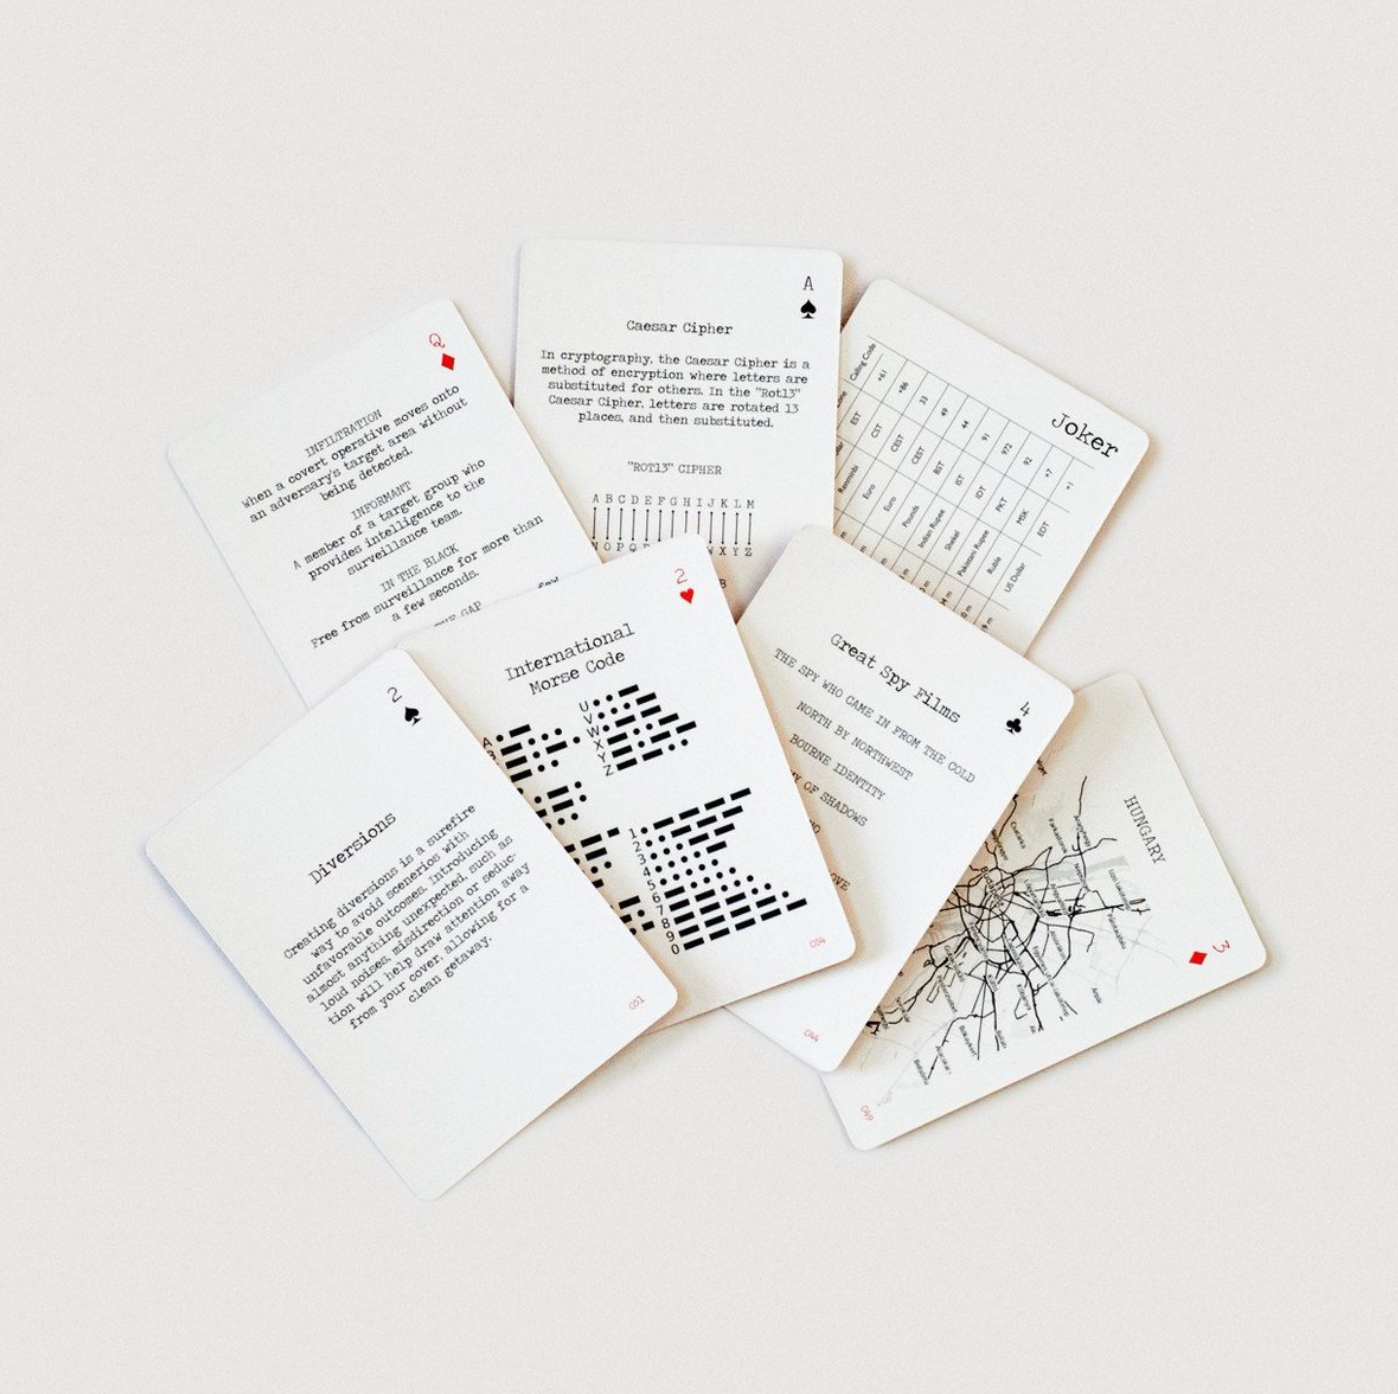 Q
INFILTRATION
When a covert operative moves onto
an adversary's target area without
being detected.
INFORMANT
A member of a target group who
provides intelligence to the
surveillance team.
IN THE BLACK
Free from surveillance for more than
a few seconds.
GAP
few
A
Caesar Cipher
In cryptography, the Caesar Cipher is a
method of encryption where letters are
substituted for others. In the "Rot13"
Caesar Cipher, letters are rotated 13
places, and then substituted.
"ROT13" CIPHER
A B C D E F G H I J K L M
N O P Q W X Y Z
B
Joker
Calling Code
+61
+86
33
49
44
91
972
92
+7
+1
EST
CST
CEST
CEST
BST
IST
IDT
PKT
MSK
EDT
Renminbi
Euro
Euro
Pounds
Indian Rupee
Shekel
Pakistani Rupee
Ruble
US Dollar
2
Diversions
Creating diversions is a surefire
way to avoid scenerios with
unfavorable outcomes. Introducing
almost anything unexpected, such as
loud noises, misdirection or seduc-
tion will help draw attention away
from your cover, allowing for a
clean getaway.
051
2
International
Morse Code
A
U
V
W
X
Y
Z
1
2
3
4
5
6
7
8
9
0
034
4
Great Spy Films
THE SPY WHO CAME IN FROM THE COLD
NORTH BY NORTHWEST
BOURNE IDENTITY
OF SHADOWS
044
HUNGARY
Budapest
3
049